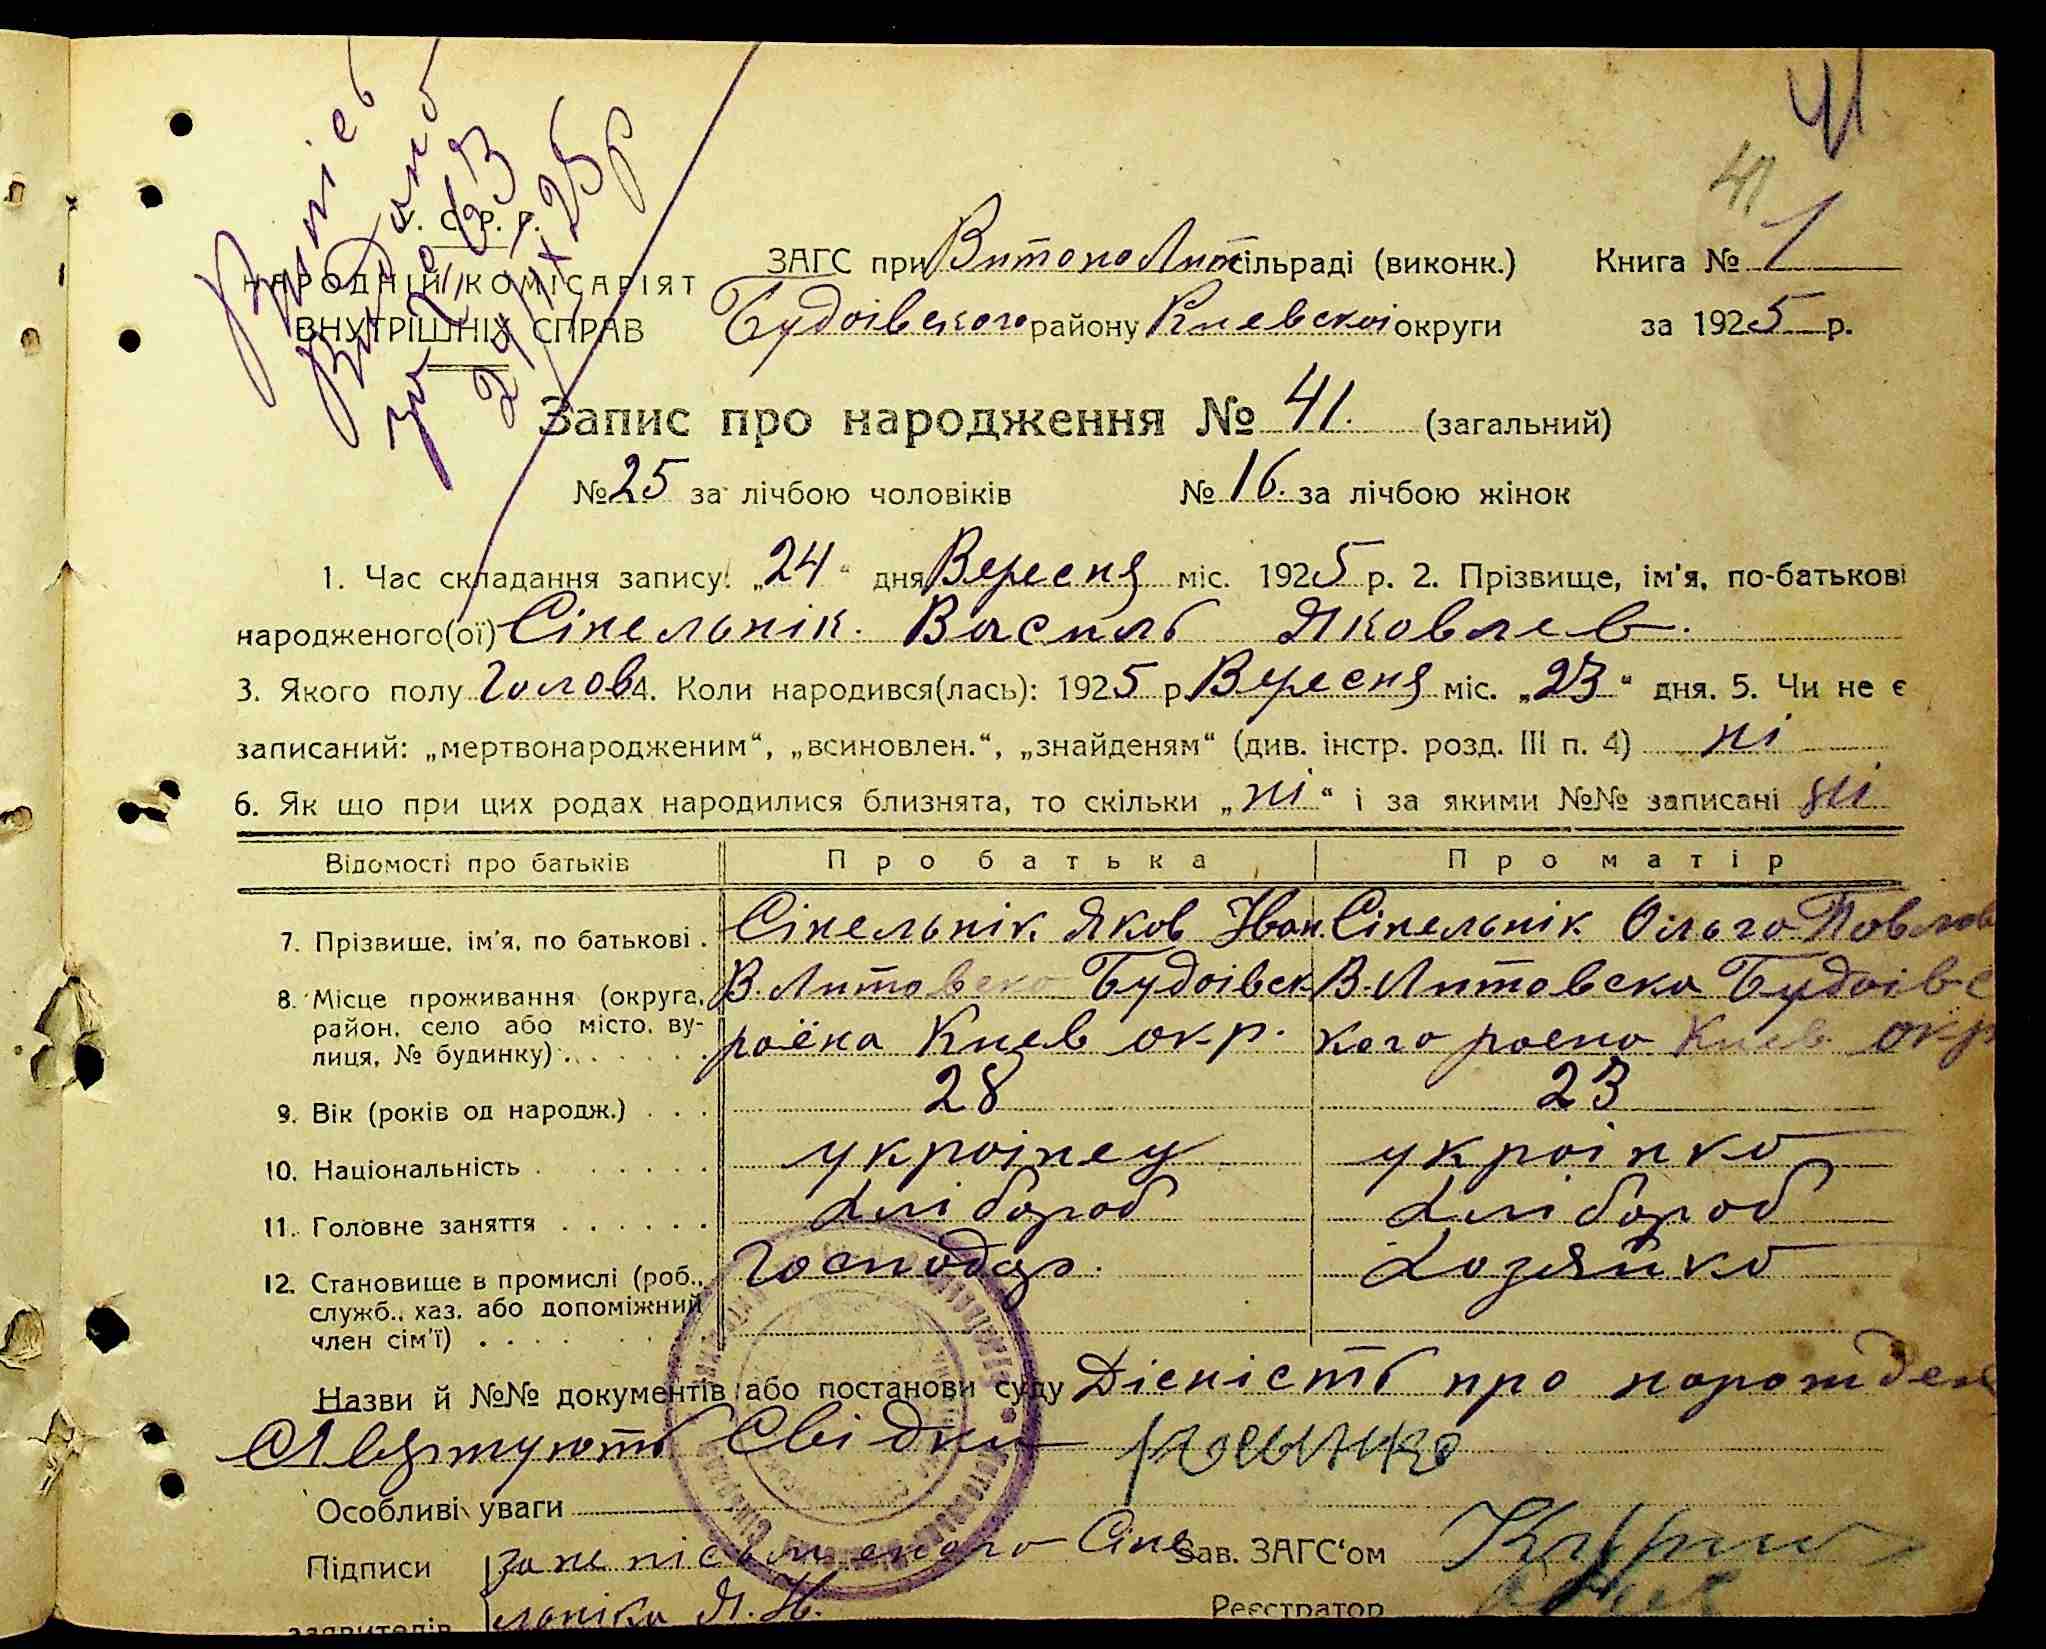 41
41
Витяг
Видано
за № 633
24/IX 25 р
У. С. Р. Р.
НАРОДНІЙ КОМІСАРІЯТ
ВНУТРІШНІХ СПРАВ
ЗАГС при Витопо Лит сільраді (виконк.) Книга № 1
Будоівского району Киевскоі округи за 1925 р.
Запис про народження № 41. (загальний)
№ 25 за лічбою чоловіків № 16. за лічбою жінок
1. Час складання запису: „24“ дня Вересня міс. 1925 р. 2. Прізвище, ім'я, по-батькові
народженого(ої) Сінельнік. Василь Яковлев.
3. Якого полу Голов 4. Коли народився(лась): 1925 р. Вересня міс. „23“ дня. 5. Чи не є
записаний: „мертвонародженим“, „всиновлен.“, „знайденям“ (див. інстр. розд. III п. 4) ні
6. Як що при цих родах народилися близнята, то скільки „ні“ і за якими №№ записані ні
Відомості про батьків Про батька Про матір
7. Прізвище, ім'я, по батькові . Сінельнік. Яков Іван. Сінельнік Ольга Павлов
8. Місце проживання (округа, район, село або місто, вулиця, № будинку) . В. Литовска Будоівск раёна Киев окр. В. Литовска Будоівс кого раена Киев окр
9. Вік (років од народж.) . . . 28 23
10. Національність . украінец украінка
11. Головне заняття . хлібороб хлібороб
12. Становище в промислі (роб., служб., хаз. або допоміжний член сім'ї) . Господар. Хозяйка
Назви й №№ документів або постанови суду Дісність про народжен
ня свідкують Свідки
Особливі уваги
Підписи за не пісьменого Сіне Зав. ЗАГС‘ом
заявителів льніка Я. И. Реєстратор